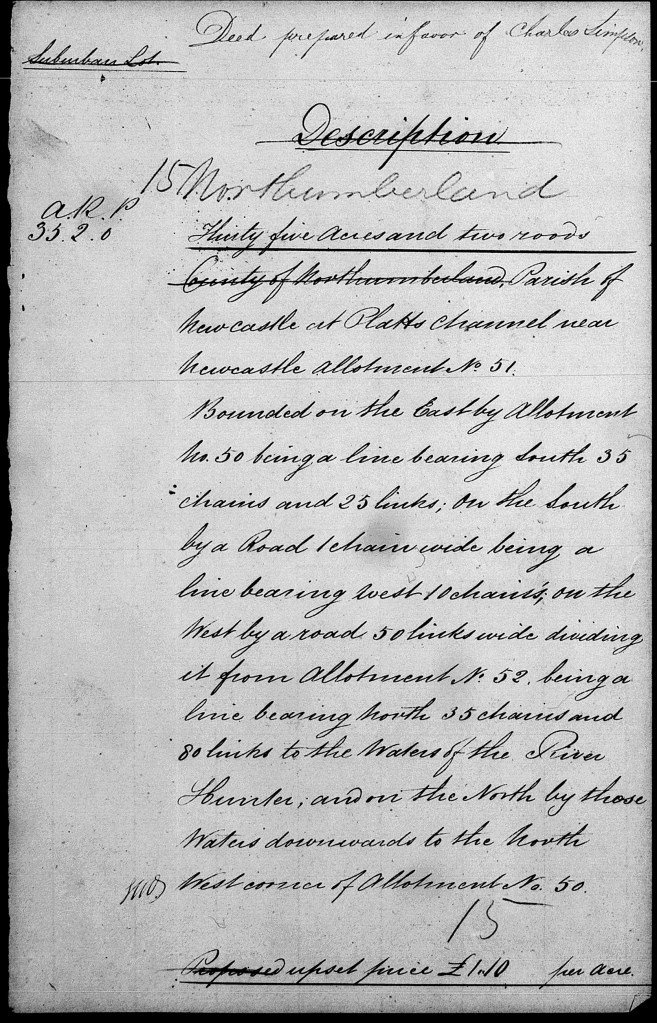 Deed prepared in favor of Charles Simpson.
Suburban Lot.
Description
15 Northumberland
A. R. P
35. 2. 0
Thirty five Acres and two roods
County of Northumberland, Parish of
Newcastle at Platts Channel near
Newcastle Allotment No. 51.
Bounded on the East by Allotment
No. 50 being a line bearing South 35
chains and 25 links; on the South
by a Road 1 chain wide being a
line bearing West 10 chains; on the
West by a road 50 links wide dividing
it from Allotment No. 52. being a
line bearing North 35 chains and
80 links to the Waters of the River
Hunter; and on the North by those
Waters downwards to the North
West corner of Allotment No. 50.
15
Proposed upset price £1.10 per Acre.